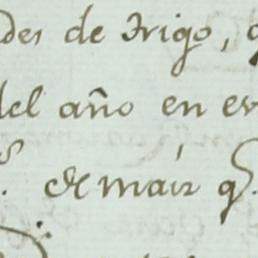 des de Trigo,
del año en
de maiz q